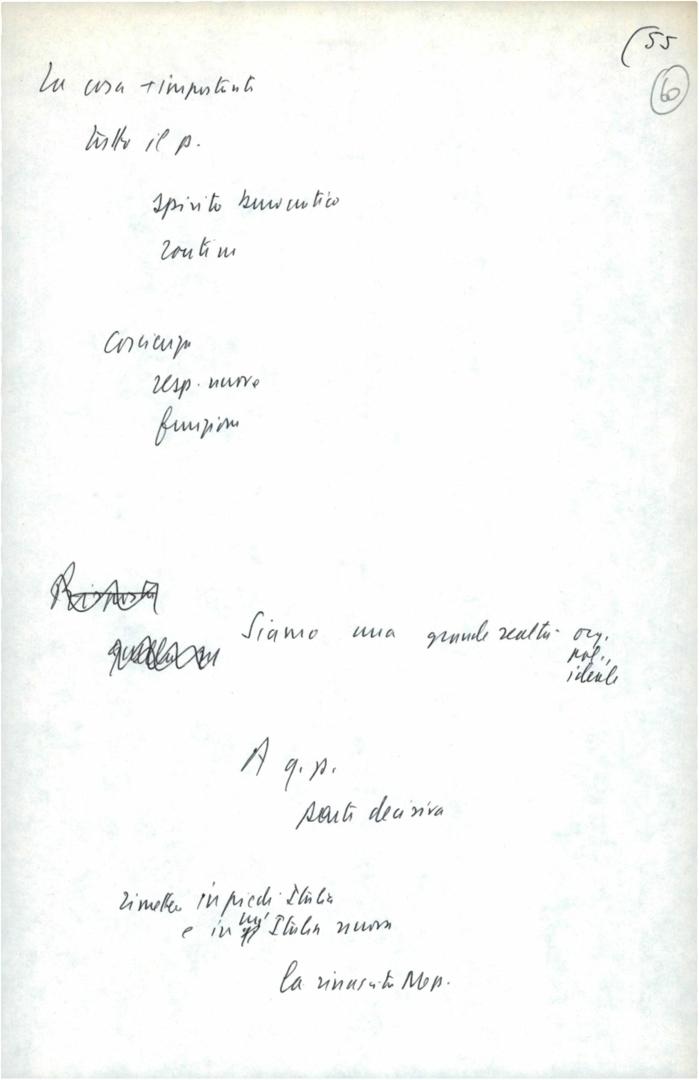 (55
60
La cosa + importante
tutto il p.
spirito burocratico
routine
Coscienza
resp. nuove
funzione
Siamo una grande realtà org.
pol.,
ideale
A q. p.
parte decisiva
rimettere in piedi Italia
e in un' Italia nuova
la rinascita Mep.